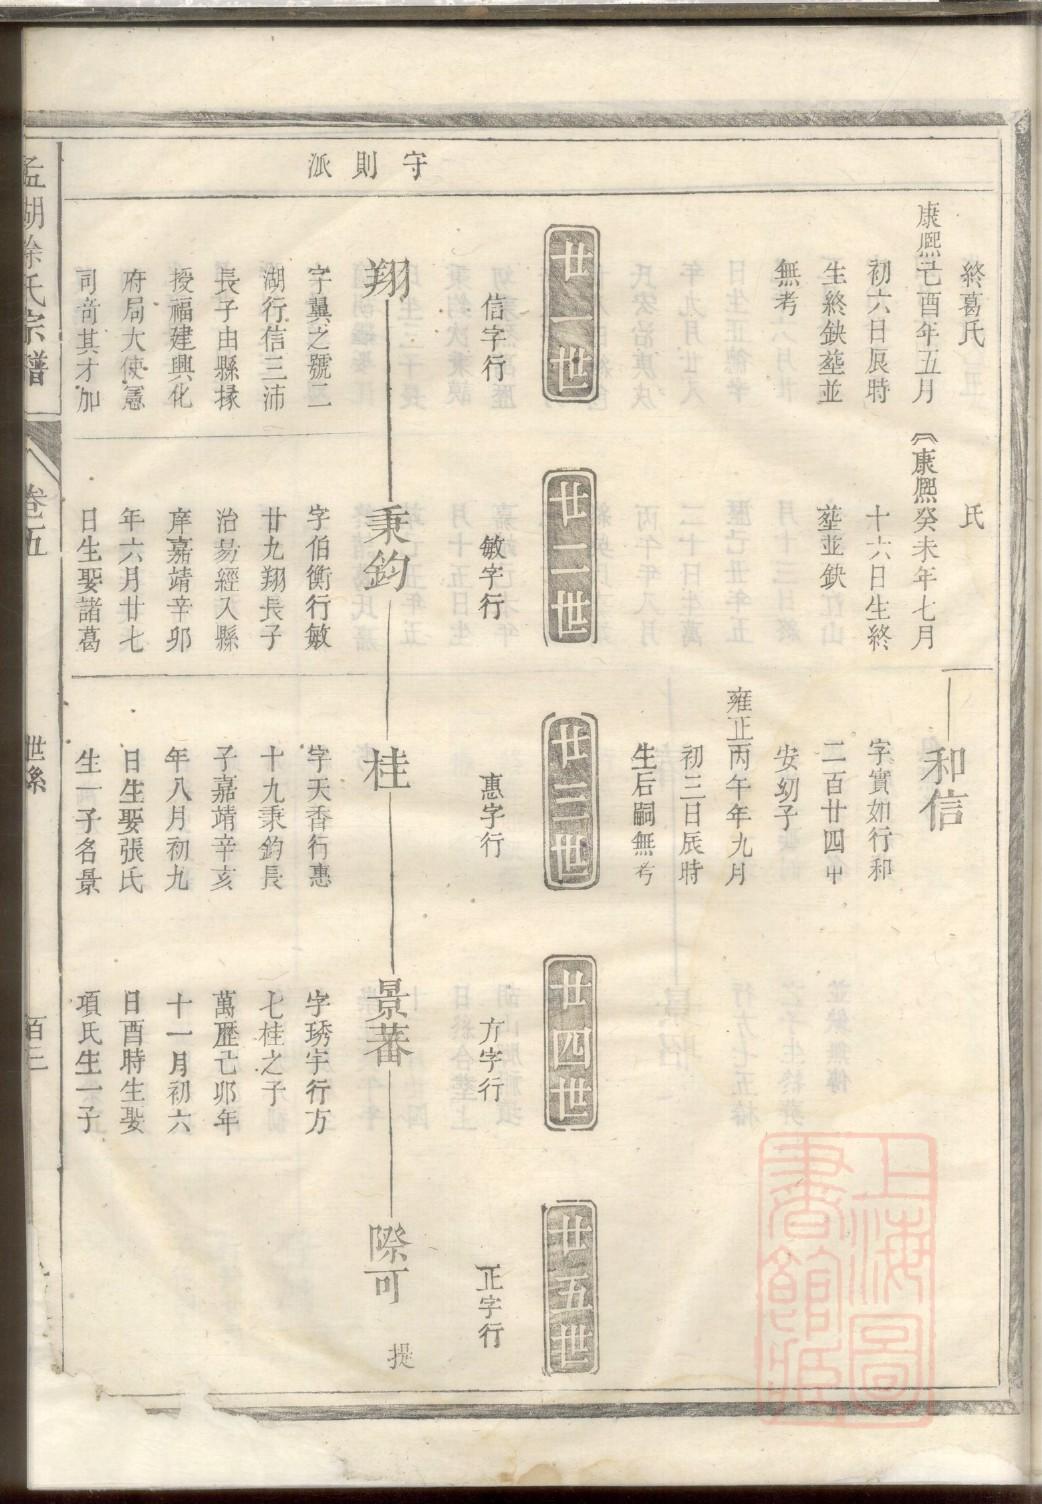 守則派
終葛氏
康熙己酉年五月
初六日辰時
生終缺塟並
無考
氏
康熙癸未年七月
十六日生終
塟並缺
和信
字實如行和
二百廿四
安幼子
雍正丙午年九月
初三日辰時
生后嗣無考
廿一世
廿二世
廿三世
廿四世
廿五世
信字行
敏字行
惠字行
方字行
正字行
翔
字翼之號二
湖行信三沛
長子由縣掾
授福建興化
府局大使憲
司奇其才加
秉鈞
字伯衡行敏
廿九翔長子
治易經入縣
庠嘉靖辛卯
年六月廿七
日生娶諸葛
桂
字天香行惠
十九秉鈞長
子嘉靖辛亥
年八月初九
日生娶張氏
生一子名景
景蕃
字琇宇行方
七桂之子
萬歷己卯年
十一月初六
日酉時生娶
項氏生一子
際可
提
孟湖徐氏宗譜
卷五
世系
百二
上海圖書館藏